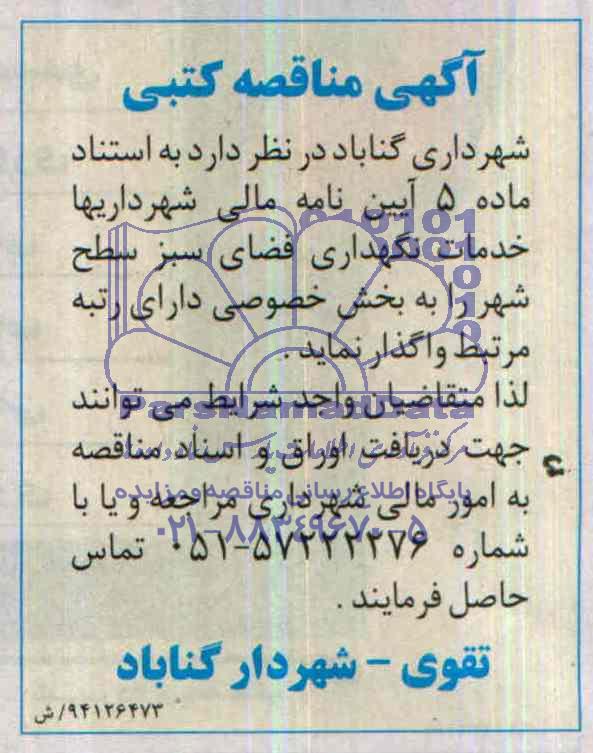 آگهی مناقصه کتبی
شهرداری گناباد در نظر دارد به استناد
ماده ۵ آیین نامه مالی شهرداریها
خدمات نگهداری فضای سبز سطح
شهر را به بخش خصوصی دارای رتبه
مرتبط واگذار نماید.
لذا متقاضیان واجد شرایط می توانند
جهت دریافت اوراق و اسناد مناقصه
به امور مالی شهرداری مراجعه و یا با
شماره ۵۷۲۲۲۲۷۶-۰۵۱ تماس
حاصل فرمایند.
تقوی - شهردار گناباد
۹۴۱۲۶۴۷۳/ش
ParsNamadData
پایگاه اطلاع رسانی مناقصه و مزایده
۰۲۱-۸۸۳۴۹۶۷۰-۵